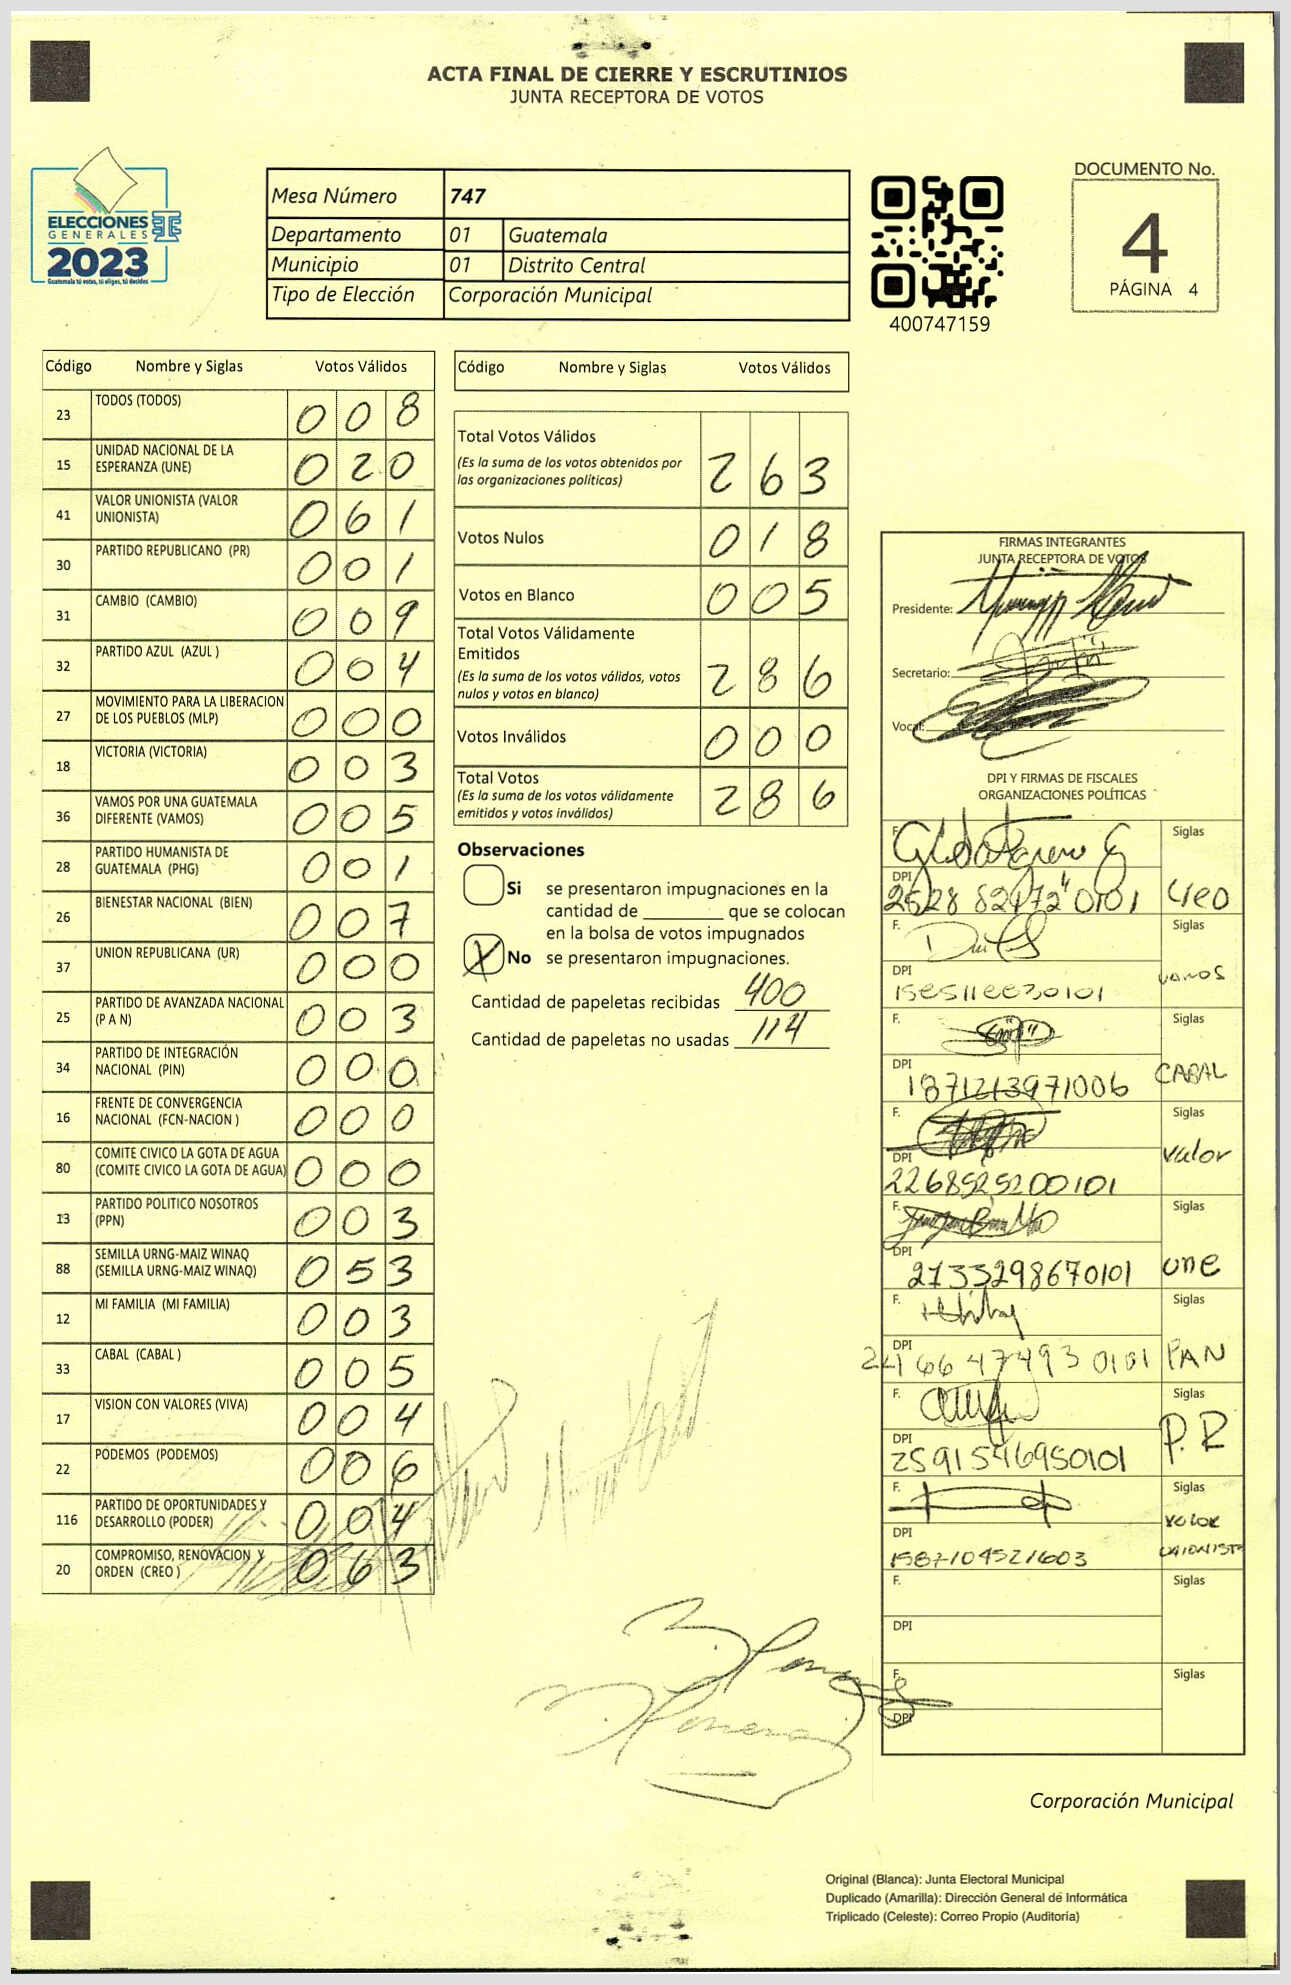 ACTA FINAL DE CIERRE Y ESCRUTINIOS
JUNTA RECEPTORA DE VOTOS
ELECCIONES
GENERALES
2023
Guatemala tú votas, tú eliges, tú decides
Mesa Número 747
Departamento 01 Guatemala
Municipio 01 Distrito Central
Tipo de Elección Corporación Municipal
400747159
DOCUMENTO No.
4
PÁGINA 4
Código Nombre y Siglas Votos Válidos
23 TODOS (TODOS) 008
15 UNIDAD NACIONAL DE LA ESPERANZA (UNE) 020
41 VALOR UNIONISTA (VALOR UNIONISTA) 061
30 PARTIDO REPUBLICANO (PR) 001
31 CAMBIO (CAMBIO) 009
32 PARTIDO AZUL (AZUL ) 004
27 MOVIMIENTO PARA LA LIBERACION DE LOS PUEBLOS (MLP) 000
18 VICTORIA (VICTORIA) 003
36 VAMOS POR UNA GUATEMALA DIFERENTE (VAMOS) 005
28 PARTIDO HUMANISTA DE GUATEMALA (PHG) 001
26 BIENESTAR NACIONAL (BIEN) 007
37 UNION REPUBLICANA (UR) 000
25 PARTIDO DE AVANZADA NACIONAL (P A N) 003
34 PARTIDO DE INTEGRACIÓN NACIONAL (PIN) 000
16 FRENTE DE CONVERGENCIA NACIONAL (FCN-NACION ) 000
80 COMITE CIVICO LA GOTA DE AGUA (COMITE CIVICO LA GOTA DE AGUA) 000
13 PARTIDO POLITICO NOSOTROS (PPN) 003
88 SEMILLA URNG-MAIZ WINAQ (SEMILLA URNG-MAIZ WINAQ) 053
12 MI FAMILIA (MI FAMILIA) 003
33 CABAL (CABAL ) 005
17 VISION CON VALORES (VIVA) 004
22 PODEMOS (PODEMOS) 006
116 PARTIDO DE OPORTUNIDADES Y DESARROLLO (PODER) 004
20 COMPROMISO, RENOVACION Y ORDEN (CREO ) 063
Código Nombre y Siglas Votos Válidos
Total Votos Válidos 263
(Es la suma de los votos obtenidos por
las organizaciones políticas)
Votos Nulos 018
Votos en Blanco 005
Total Votos Válidamente
Emitidos 286
(Es la suma de los votos válidos, votos
nulos y votos en blanco)
Votos Inválidos 000
Total Votos 286
(Es la suma de los votos válidamente
emitidos y votos inválidos)
Observaciones
Si se presentaron impugnaciones en la
cantidad de ________ que se colocan
en la bolsa de votos impugnados
X No se presentaron impugnaciones.
Cantidad de papeletas recibidas 400
Cantidad de papeletas no usadas 114
FIRMAS INTEGRANTES
JUNTA RECEPTORA DE VOTOS
Presidente:
Secretario:
Vocal:
DPI Y FIRMAS DE FISCALES
ORGANIZACIONES POLÍTICAS
F. Siglas
DPI
F. Siglas
DPI VAMOS
F. Siglas
DPI 1871213971006 CABAL
F. Siglas
DPI 2268525200101 Valor
F. Siglas
DPI 2733298670101 une
F. Siglas
DPI 2466474930101 PAN
F. Siglas
DPI 2591546950101 P.R
F. Siglas
DPI 1587104521603 VALOR UNIONISTA
F. Siglas
DPI
F. Siglas
DPI
Corporación Municipal
Original (Blanca): Junta Electoral Municipal
Duplicado (Amarilla): Dirección General de Informática
Triplicado (Celeste): Correo Propio (Auditoría)